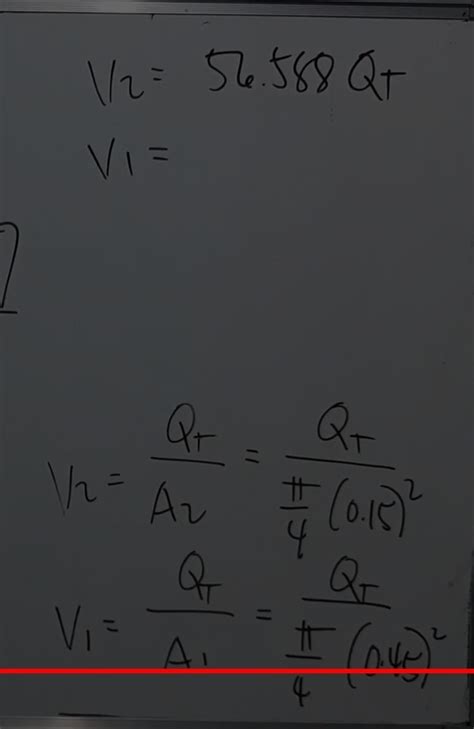 V2 = 56.588 QT
V1 =
V2 = QT / A2 = QT / (π/4 (0.15)²)
V1 = QT / A1 = QT / (π/4 (0.45)²)